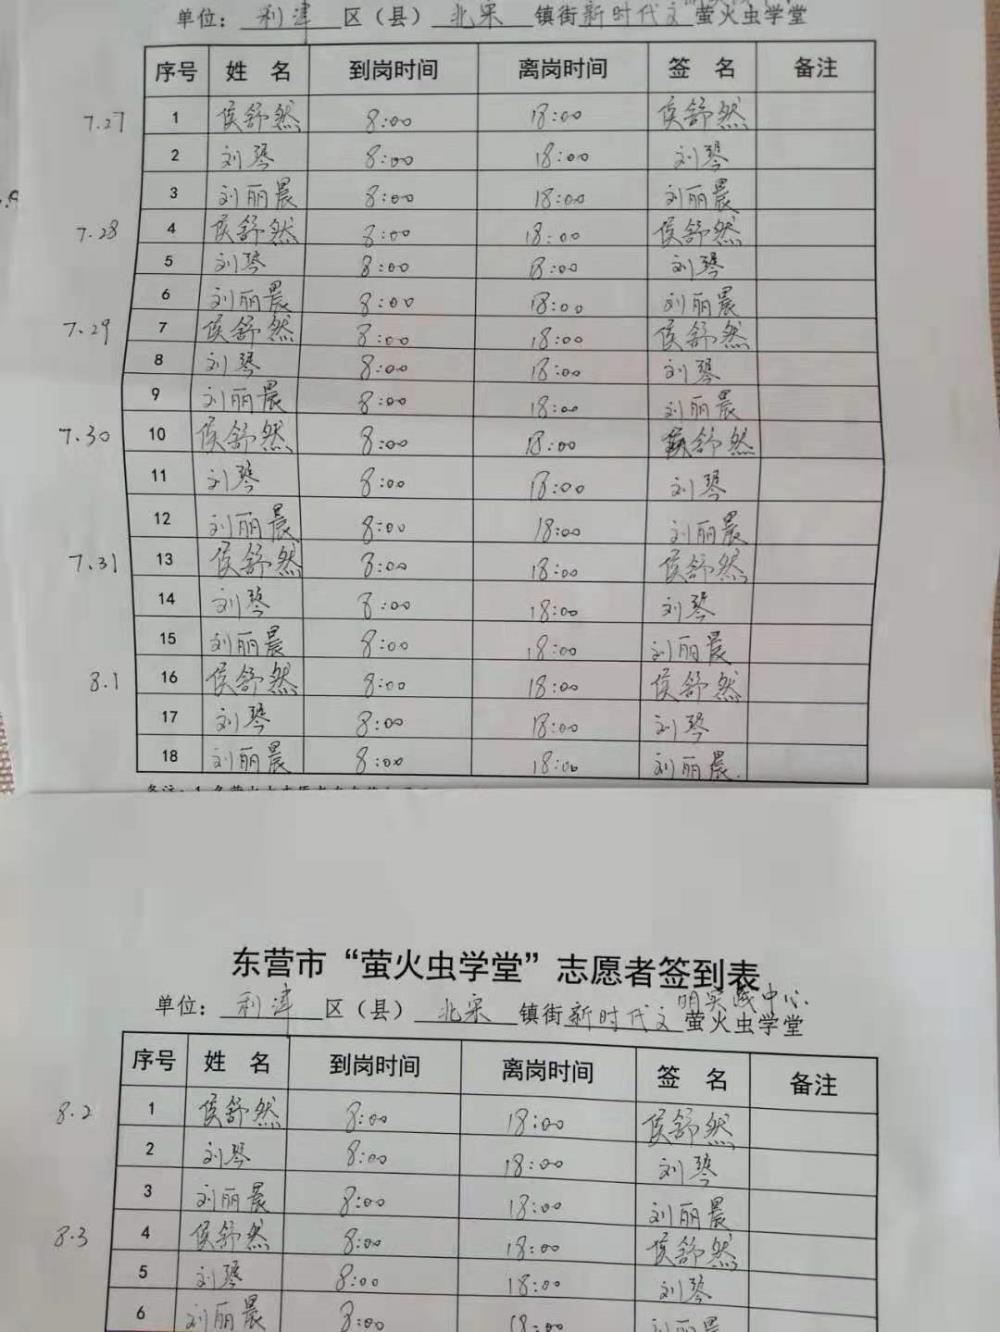 单位：利津 区（县）北宋 镇街新时代文 萤火虫学堂
序号 姓 名 到岗时间 离岗时间 签 名 备注
7.27 1 侯舒然 8:00 18:00 侯舒然
2 刘琴 8:00 18:00 刘琴
3 刘丽晨 8:00 18:00 刘丽晨
7.28 4 侯舒然 8:00 18:00 侯舒然
5 刘琴 8:00 18:00 刘琴
6 刘丽晨 8:00 18:00 刘丽晨
7.29 7 侯舒然 8:00 18:00 侯舒然
8 刘琴 8:00 18:00 刘琴
9 刘丽晨 8:00 18:00 刘丽晨
7.30 10 侯舒然 8:00 18:00 侯舒然
11 刘琴 8:00 18:00 刘琴
12 刘丽晨 8:00 18:00 刘丽晨
7.31 13 侯舒然 8:00 18:00 侯舒然
14 刘琴 8:00 18:00 刘琴
15 刘丽晨 8:00 18:00 刘丽晨
8.1 16 侯舒然 8:00 18:00 侯舒然
17 刘琴 8:00 18:00 刘琴
18 刘丽晨 8:00 18:00 刘丽晨
东营市“萤火虫学堂”志愿者签到表
明实践中心
单位：利津 区（县）北宋 镇街新时代文 萤火虫学堂
序号 姓 名 到岗时间 离岗时间 签 名 备注
8.2 1 侯舒然 8:00 18:00 侯舒然
2 刘琴 8:00 18:00 刘琴
3 刘丽晨 8:00 18:00 刘丽晨
8.3 4 侯舒然 8:00 18:00 侯舒然
5 刘琴 8:00 18:00 刘琴
6 刘丽晨 8:00 18:00 刘丽晨